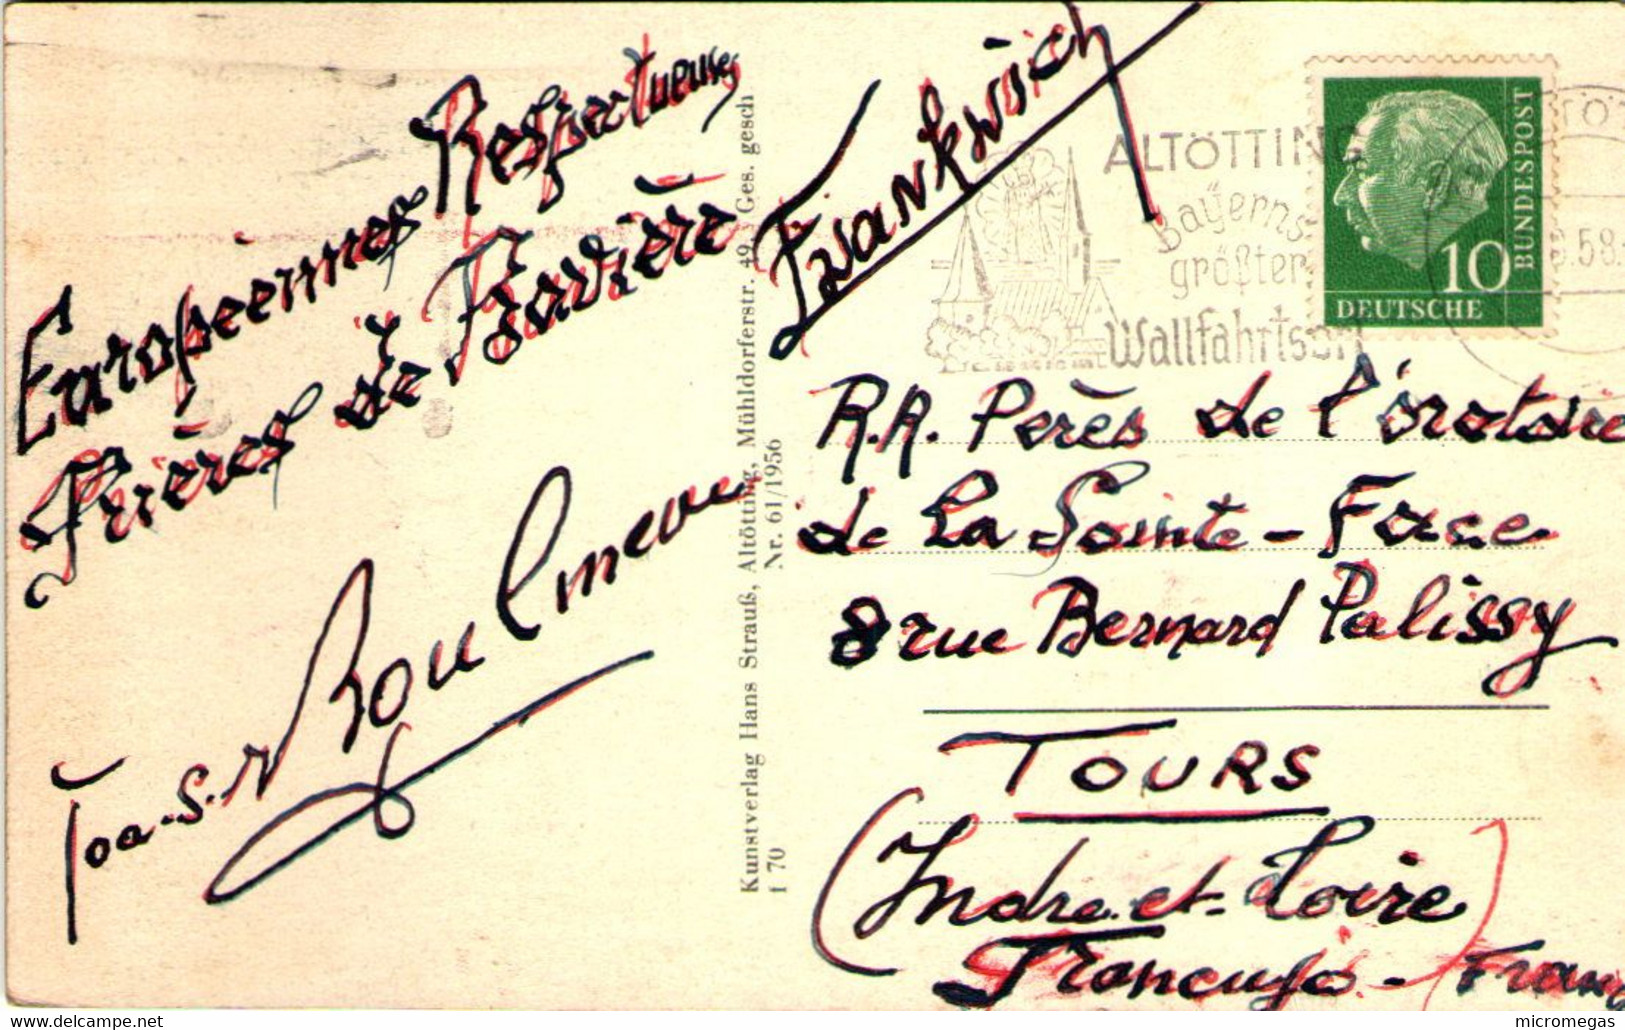 Européennes Respectueuses
Prières de Bavière
Boulmeau
Kunstverlag Hans Strauß, Altötting, Mühldorferstr. 49, Ges. gesch
f 70 Nr. 61/1956
Frankreich
ALTÖTTING
Bayerns
größter
Wallfahrtsort
10
DEUTSCHE
BUNDESPOST
.58.
R.R. Pères de l'oratoire
de La Sainte-Face
8 rue Bernard Palissy
TOURS
(Indre-et-Loire)
www.delcampe.net
micromegas